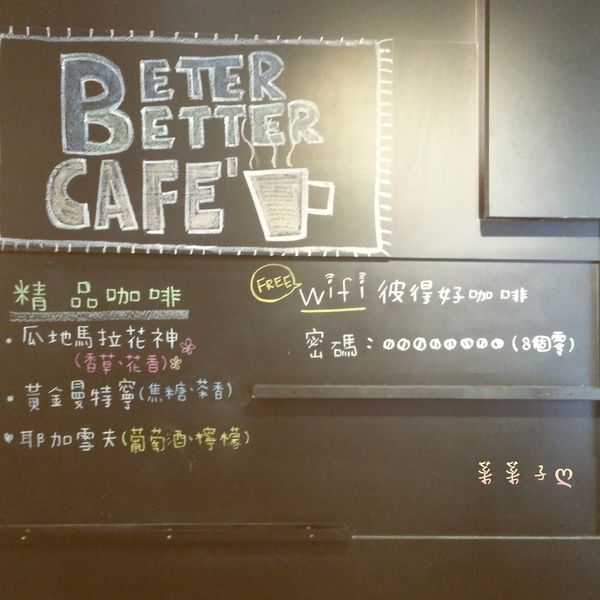 BETER
BETTER
CAFE'
精品咖啡
・瓜地馬拉花神
(香草、花香)
・黃金曼特寧(焦糖、茶香)
♥耶加雪夫(葡萄酒、檸檬)
FREE
wifi 彼得好咖啡
密碼：00000000 (8個零)
菜菜子